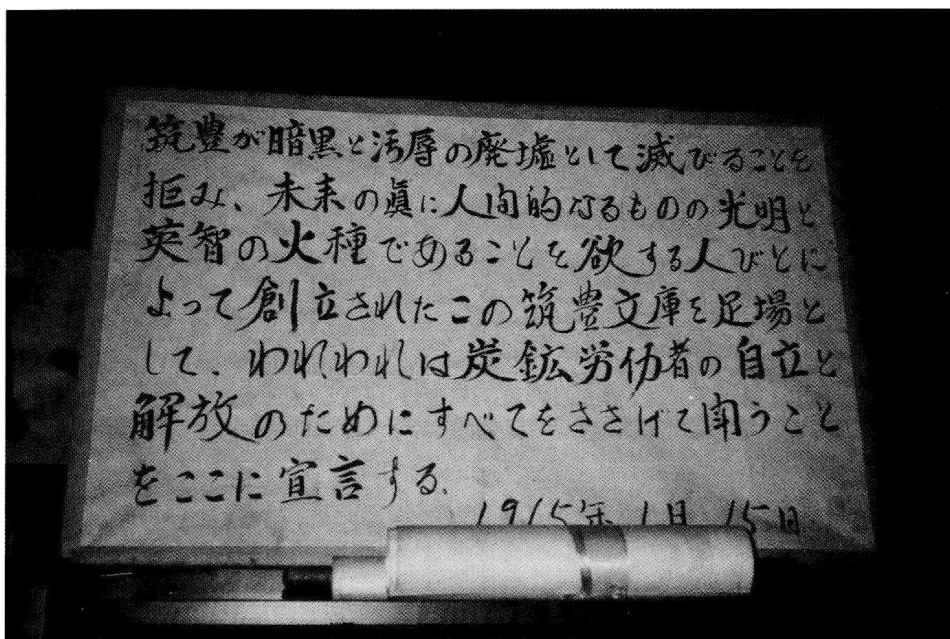 筑豊が暗黒と汚辱の廃墟として滅びることを
拒み、未来の眞に人间的なるものの光明と
英智の火種であることを欲する人びとに
よって創立されたこの筑豊文庫を足場と
して、われわれは炭鉱労仂者の自立と
解放のためにすべてをささげて闘うこと
をここに宣言する.
年1月15日